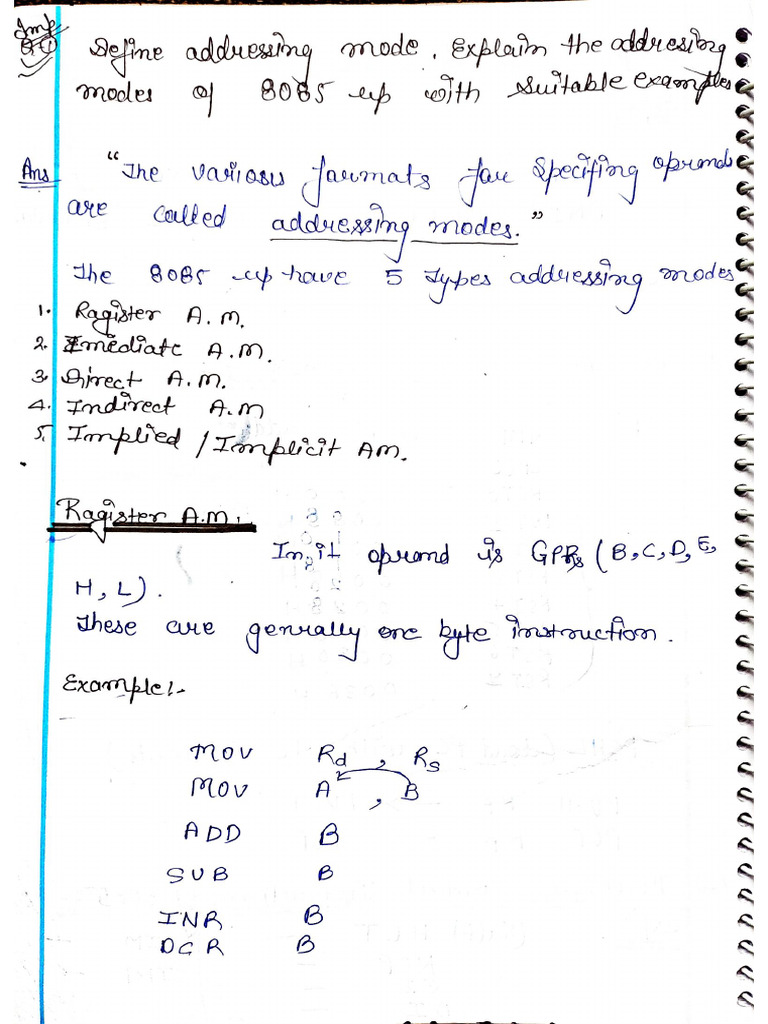 Imp
Q.1 Define addressing mode. Explain the addressing
modes of 8085 up with suitable examples
Ans "The various formats for Specifing oprands
are called addressing modes."
The 8085 up have 5 types addressing modes
1. Ragister A.M.
2. Imediate A.M.
3. Direct A.M.
4. Indirect A.M
5. Implied / Implicit AM.
Ragister A.M.:
In it oprand is GPRs (B, C, D, E,
H, L).
These are genrally one byte instruction.
Example:-
MOV Rd , Rs
MOV A , B
ADD B
SUB B
INR B
DCR B